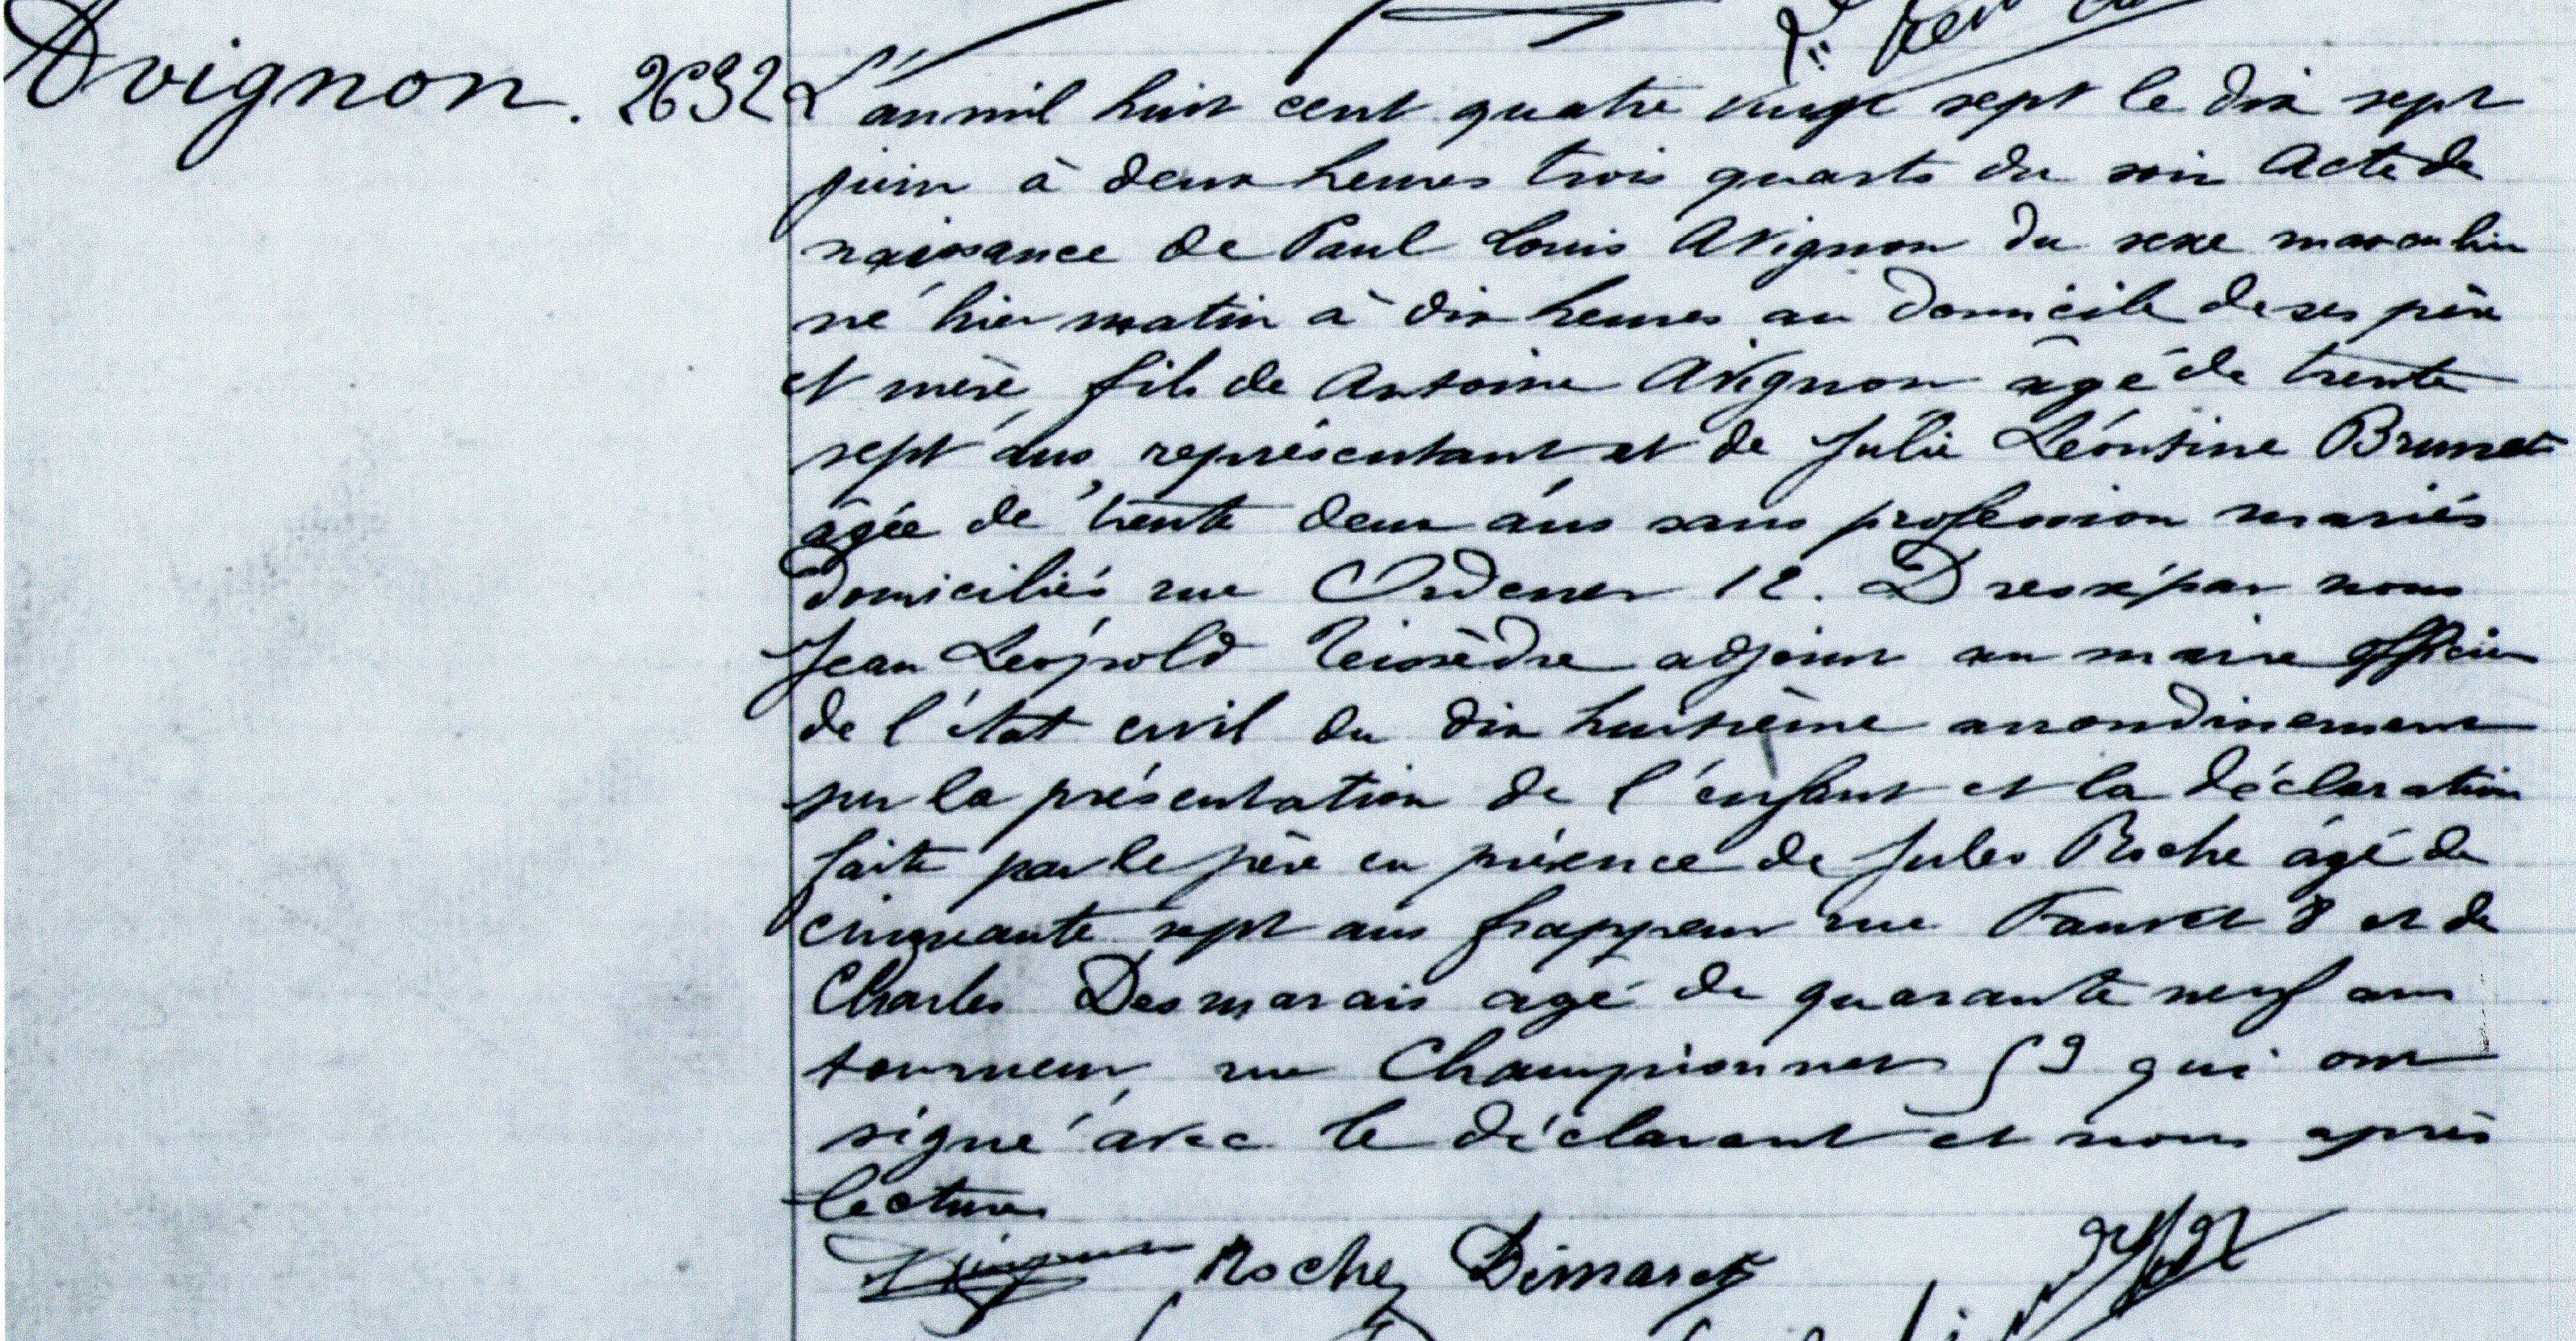 Avignon. 2632
L'an mil huit cent quatre vingt sept le dix sept
juin à deux heures trois quarts du soir Acte de
naissance de Paul Louis Avignon du sexe masculin
né hier matin à dix heures au domicile de ses père
et mère, fils de Antoine Avignon âgé de trente
sept ans, représentant et de Julie Léontine Brunet
âgée de trente deux ans sans profession mariés
domiciliés rue Ordener 12. Dressé par nous
Jean Léopold Teissèdre adjoint au maire officier
de l'état civil du dix huitième arrondissement
sur la présentation de l'enfant et la déclaration
faite par le père en présence de Jules Roche âgé de
cinquante sept ans frappeur rue Fauvet 8 et de
Charles Desmarais agé de quarante neuf ans
tourneur, rue Championnet 59 qui ont
signé avec le déclarant et nous après
lecture
Roche Dimarets